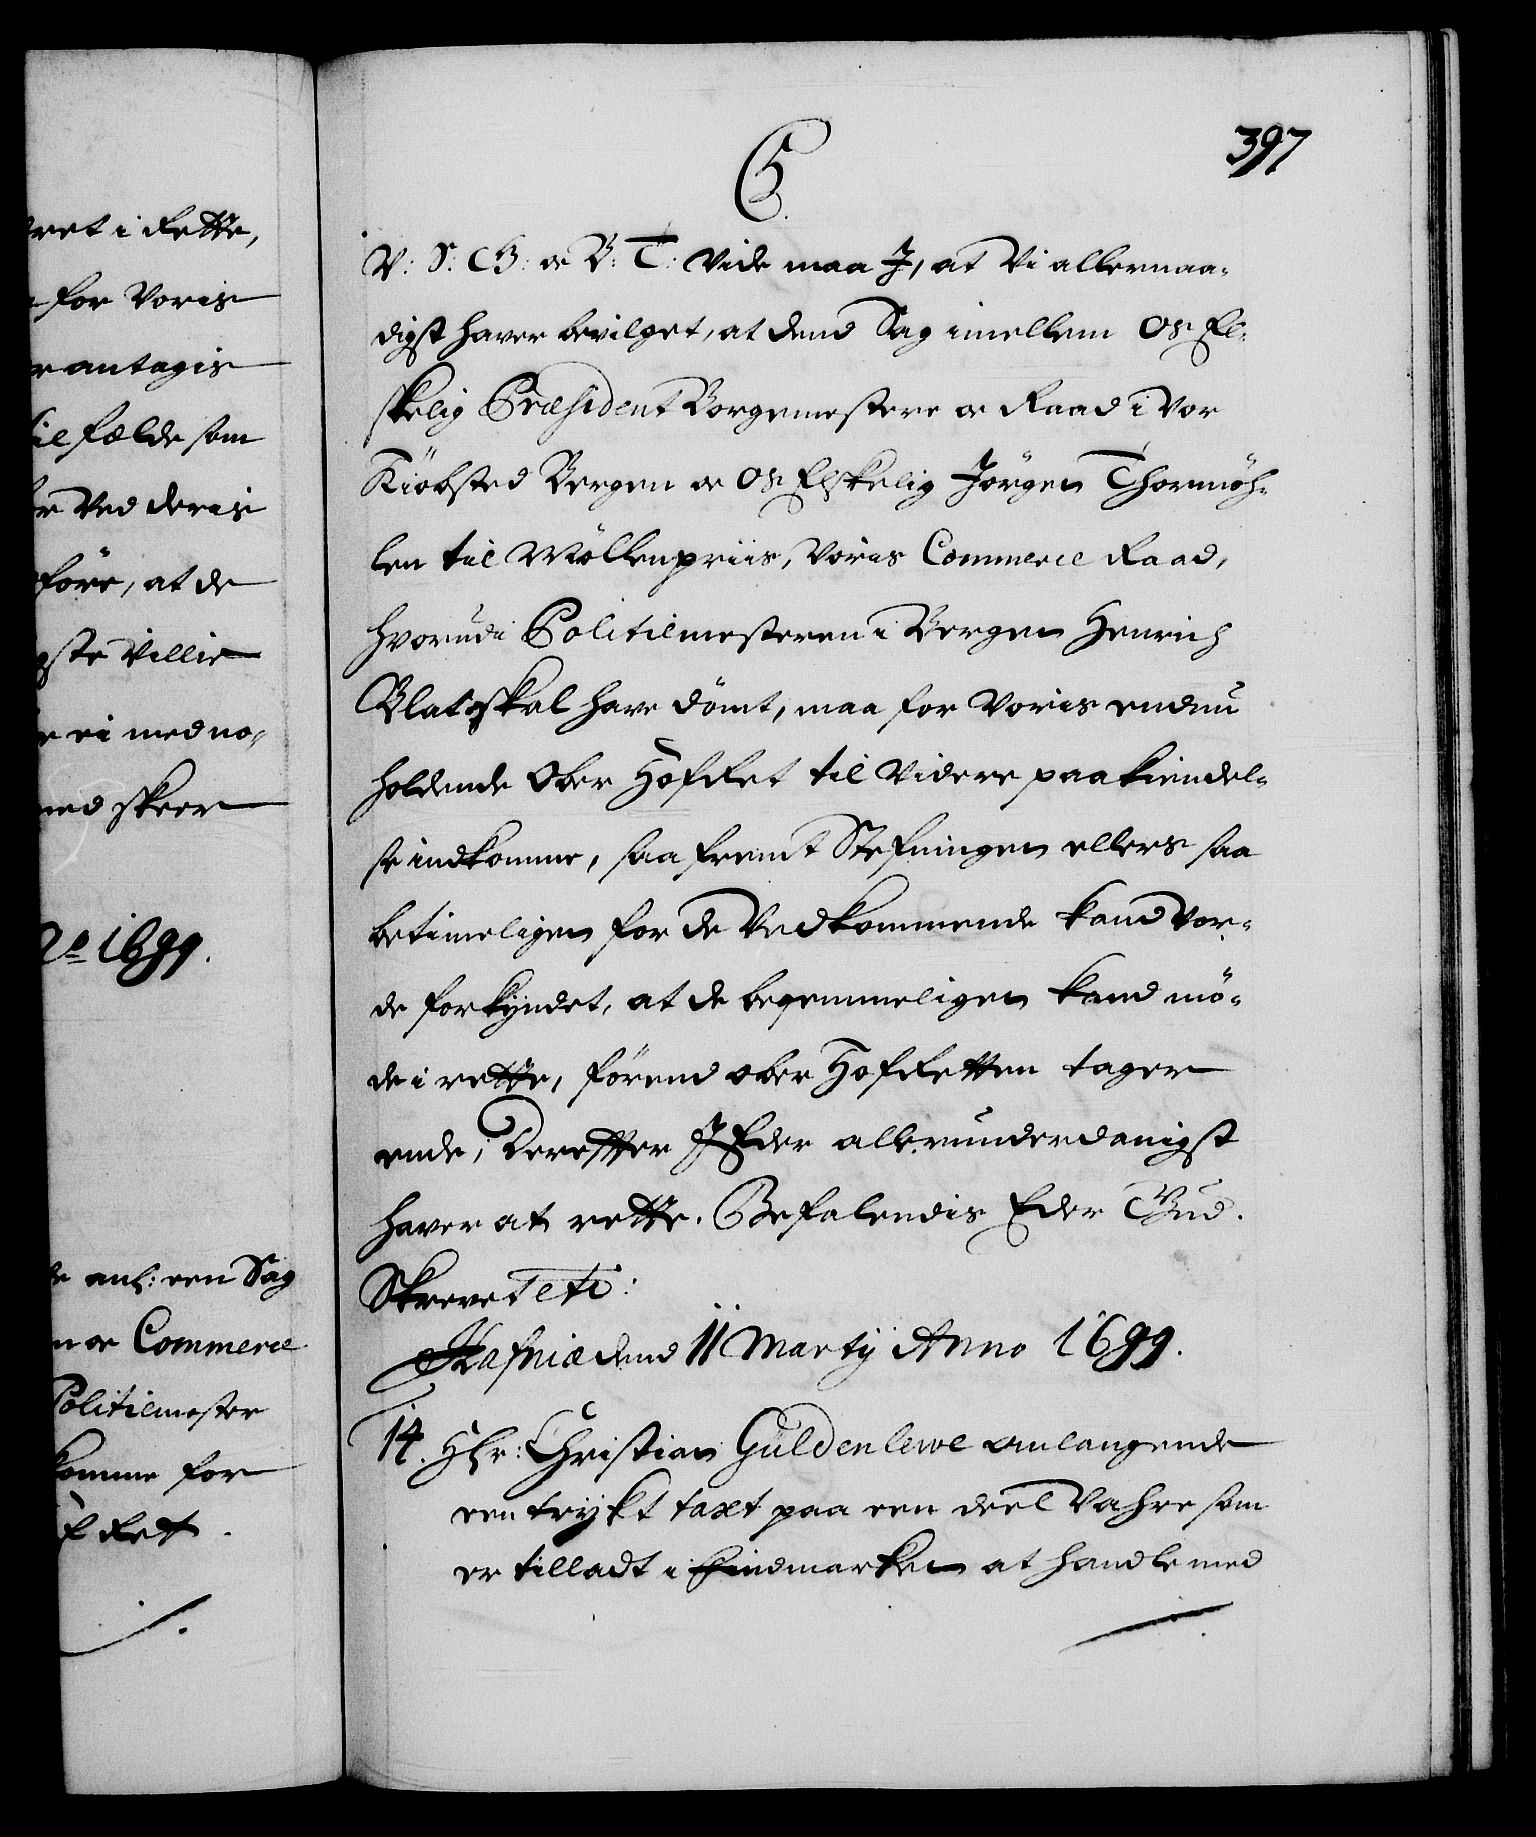 ret i Rette,
for Voris
antagis
til fælde som
Ved deris
före, at de
gste Villie
ei med no-
med skeer
1699.
anl: een Sag
oc Commerce
Politiemester
komme for
Ret.
397
C5.
V: S: G: oc B: T: Vide maa J, at Vi allernaa-
digst haver bevilget, at dend Sag imellem Os El-
skelig Præsident Borgemestere oc Raad i Vor
Kiöbsted Bergen oc Os Elskelig Jörgen Thormöh-
len til Möllenpriis, Voris Commerce Raad,
hvorudi Politiemesteren i Bergen Henrich
Blatz skal have dömt, maa for Voris endnu
holdende Ober HofRet til Videre paakiendel-
se indkomme, saa fremt Stefningen ellers saa
betimeligen for de Vedkommende kand vor-
de forkyndet, at de beqvemmeligen kand mö-
de i rette, förend ober HofRetten tager
ende; Derefter J Eder allerunderdanigst
haver at rette. Befalendis Eder Gud.
Skrevet etc:
Hafniæ dend 11 Martij Anno 1699.
14. Hr: Christian Güldenlewe anlangende
een trykt taxt paa een deel Vahre som
er tilladt i Findmarken at handle med